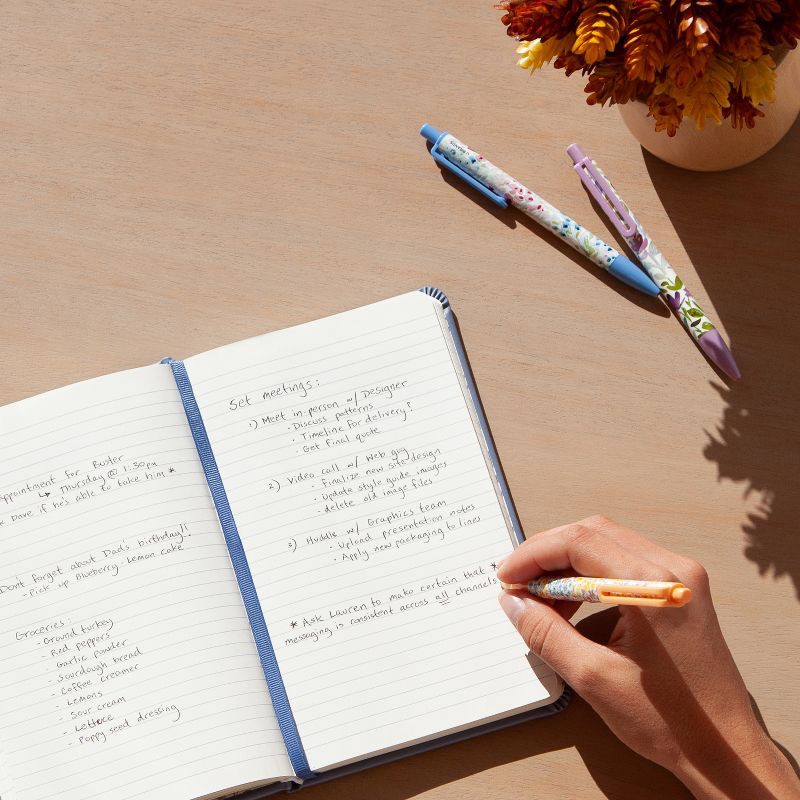 Appointment for Buster
↳ Thursday @ 1:30pm
* Dave if he's able to take him *
Don't forget about Dad's birthday!!
- Pick up Blueberry-Lemon cake
Groceries:
- Ground turkey
- Red peppers
- Garlic powder
- Sourdough bread
- Coffee creamer
- Lemons
- Sour cream
- Lettuce
- Poppy seed dressing
Set meetings:
1) Meet in-person w/ Designer
· Discuss patterns
· Timeline for delivery?
· Get final quote
2) Video call w/ Web guy
· Finalize new site design
· Update style guide images
· delete old image files
3) Huddle w/ Graphics team
· Upload presentation notes
· Apply new packaging to lines
* Ask Lauren to make certain that *
messaging is consistent across all channels